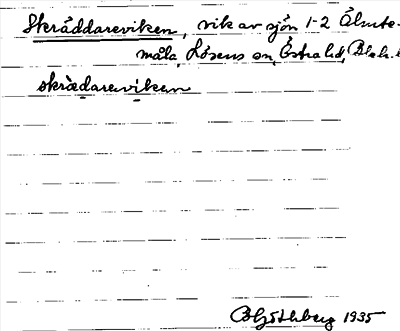 Skräddareviken, vik av sjön 1-2 Älmte-
måla, Lösens sn, Östra hd, Blek. l
skrädareviken
B Hjöthberg 1935